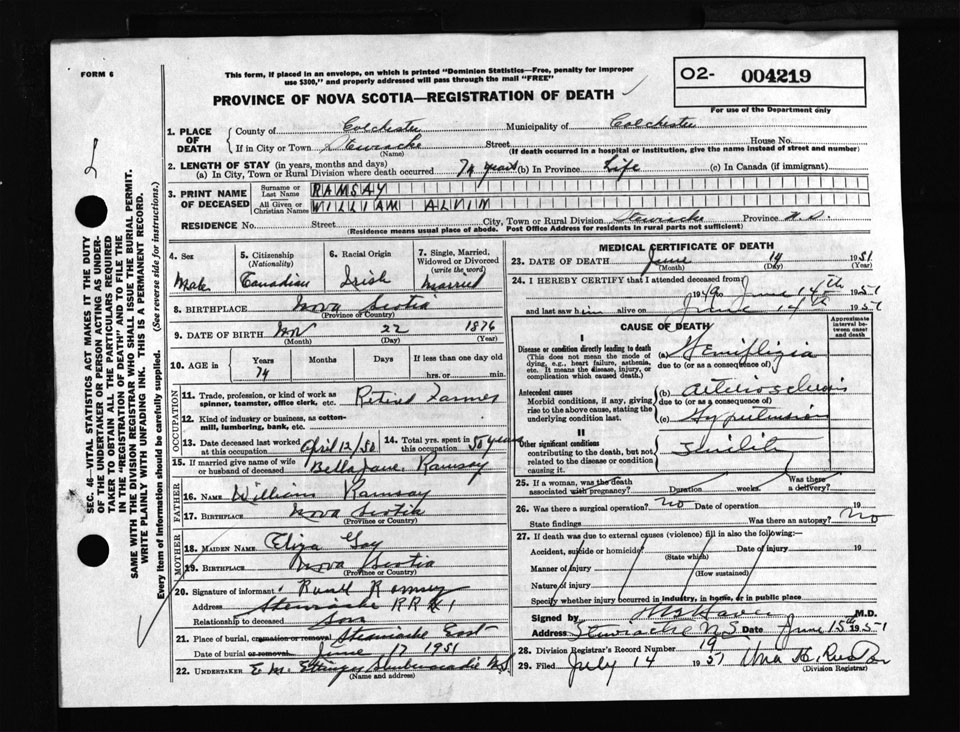 FORM 6
This form, if placed in an envelope, on which is printed "Dominion Statistics—Free, penalty for improper
use $300," and properly addressed will pass through the mail "FREE"
O2- 004219
For use of the Department only
PROVINCE OF NOVA SCOTIA—REGISTRATION OF DEATH
SEC. 46—VITAL STATISTICS ACT MAKES IT THE DUTY
OF THE UNDERTAKER OR PERSON ACTING AS UNDER-
TAKER TO OBTAIN ALL THE PARTICULARS REQUIRED
IN THE "REGISTRATION OF DEATH" AND TO FILE THE
SAME WITH THE DIVISION REGISTRAR WHO SHALL ISSUE THE BURIAL PERMIT.
WRITE PLAINLY WITH UNFADING INK. THIS IS A PERMANENT RECORD.
Every item of Information should be carefully supplied. (See reverse side for instructions.)
1. PLACE OF DEATH
County of Colchester Municipality of Colchester
If in City or Town Stewiacke Street House No.
(Name) (If death occurred in a hospital or institution, give the name instead of street and number)
2. LENGTH OF STAY (in years, months and days)
(a) In City, Town or Rural Division where death occurred 74 years (b) In Province Life (c) In Canada (if immigrant)
3. PRINT NAME OF DECEASED
Surname or Last Name RAMSAY
All Given or Christian Names WILLIAM ALVIN
RESIDENCE No. Street City, Town or Rural Division Stewiacke Province N.S.
(Residence means usual place of abode. Post Office Address for residents in rural parts not sufficient)
4. Sex Male
5. Citizenship (Nationality) Canadian
6. Racial Origin Irish
7. Single, Married, Widowed or Divorced (write the word) Married
8. BIRTHPLACE Nova Scotia
(Province or Country)
9. DATE OF BIRTH Nov 22 1876
(Month) (Day) (Year)
10. AGE in Years Months Days If less than one day old
74 hrs. or min.
OCCUPATION
11. Trade, profession, or kind of work as
spinner, teamster, office clerk, etc. Retired Farmer
12. Kind of industry or business, as cotton-
mill, lumbering, bank, etc.
13. Date deceased last worked at this occupation April 12/50
14. Total yrs. spent in this occupation 50 years
15. If married give name of wife or husband of deceased Bella Jane Ramsay
FATHER
16. NAME William Ramsay
17. BIRTHPLACE Nova Scotia
(Province or Country)
MOTHER
18. MAIDEN NAME Eliza Gay
19. BIRTHPLACE Nova Scotia
(Province or Country)
20. Signature of informant Ramsay
Address Stewiacke RR #1
Relationship to deceased Son
21. Place of burial, cremation or removal Stewiacke East
Date of burial or removal June 17 1951
22. UNDERTAKER E. M. Ettinger Shubenacadie N.S.
(Name and address)
MEDICAL CERTIFICATE OF DEATH
23. DATE OF DEATH June 14 1951
(Month) (Day) (Year)
24. I HEREBY CERTIFY that I attended deceased from
1949 to June 14th 1951
and last saw him alive on June 14th 1951
CAUSE OF DEATH
Approximate interval between onset and death
I
Disease or condition directly leading to death
(This does not mean the mode of dying, e.g., heart failure, asthenia, etc. It means the disease, injury, or complication which caused death.)
(a) Hemiplegia
due to (or as a consequence of)
Antecedent causes
Morbid conditions, if any, giving rise to the above cause, stating the underlying condition last.
(b) Arteriosclerosis
due to (or as a consequence of)
(c) Hypertension
II
Other significant conditions
contributing to the death, but not related to the disease or condition causing it.
25. If a woman, was the death associated with pregnancy? Duration weeks. Was there a delivery?
26. Was there a surgical operation? No Date of operation 19
State findings Was there an autopsy? No
27. If death was due to external causes (violence) fill in also the following:—
Accident, suicide or homicide? Date of injury 19
(State which)
Manner of injury
(How sustained)
Nature of injury
Specify whether injury occurred in industry, in home, or in public place
Signed by M.D.
Address Stewiacke N.S. Date June 15th 1951
28. Division Registrar's Record Number 19
29. Filed July 14 1951 Una
(Division Registrar)